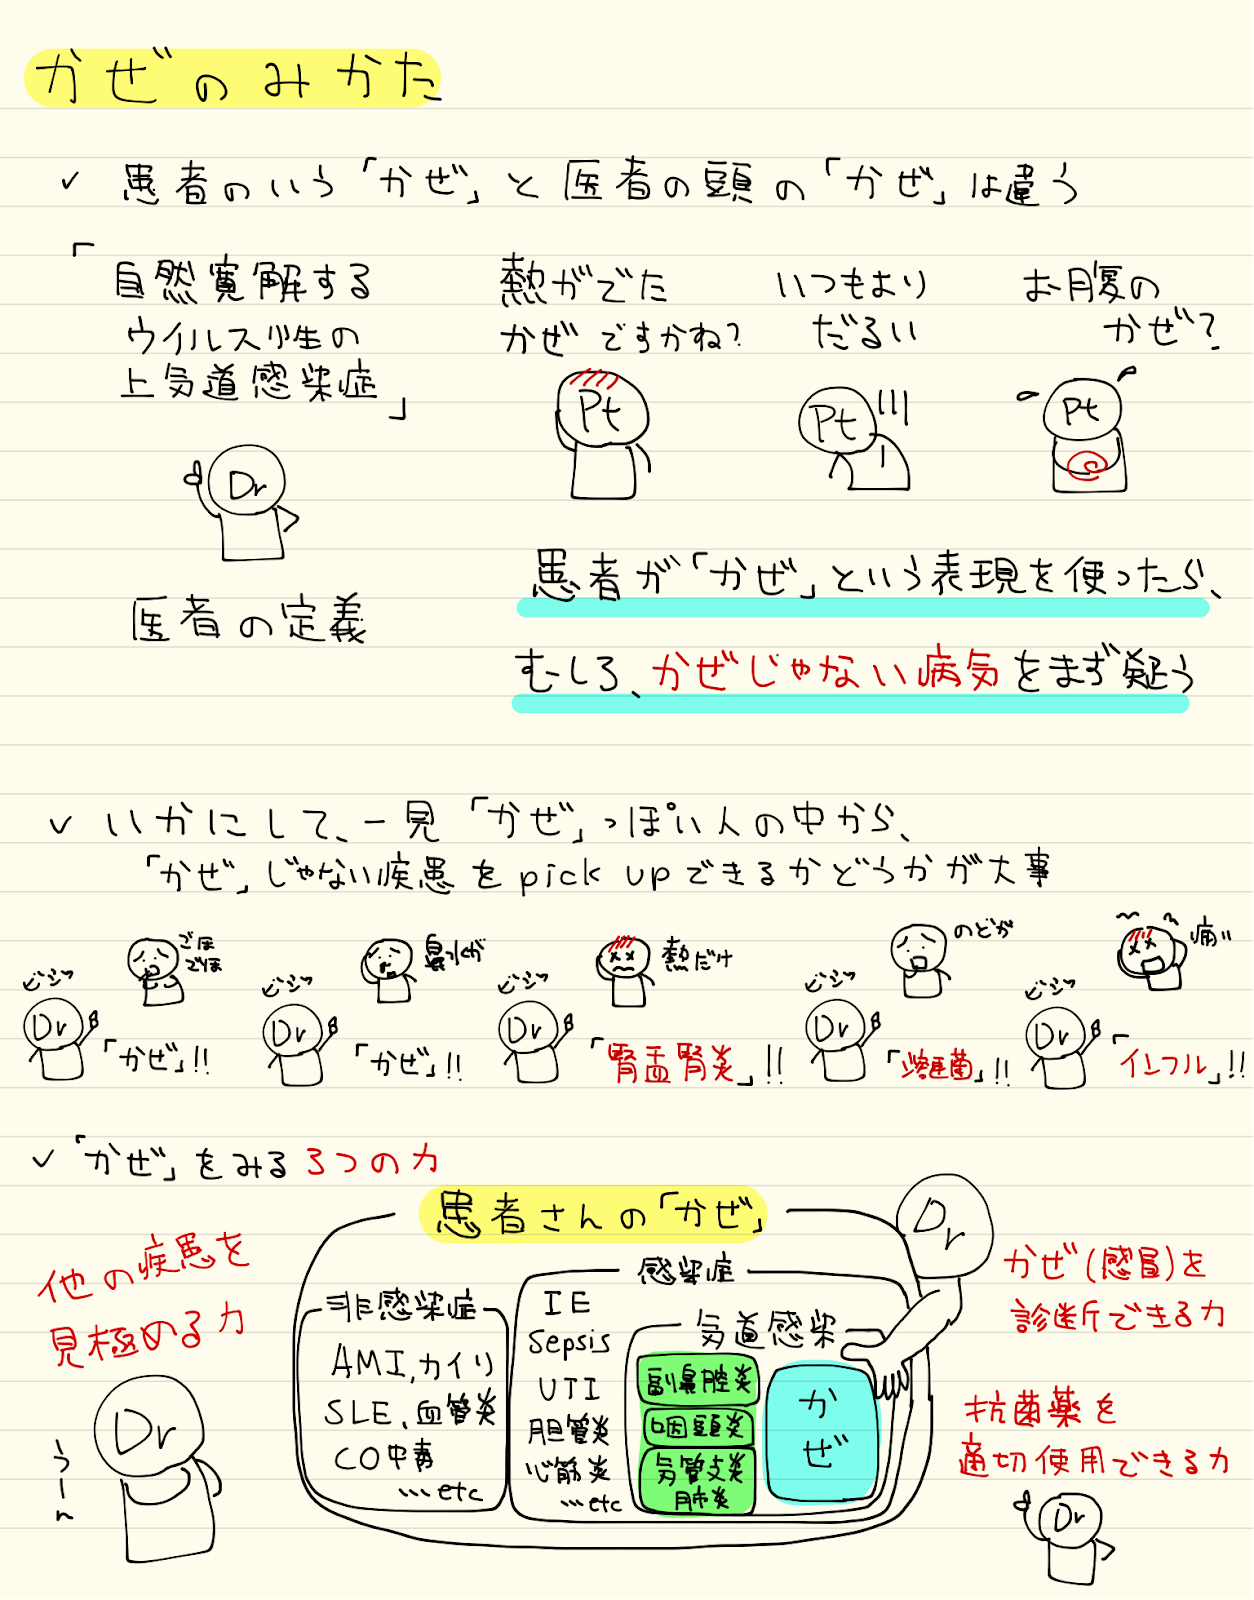 かぜのみかた
✓ 患者のいう「かぜ」と医者の頭の「かぜ」は違う
「自然寛解する
ウイルス性の
上気道感染症」
Dr
医者の定義
熱がでた
かぜですかね?
Pt
いつもより
だるい
Pt
お腹の
かぜ?
Pt
患者が「かぜ」という表現を使ったら、
むしろ、かぜじゃない病気をまず疑う
✓ いかにして、一見「かぜ」っぽい人の中から、
「かぜ」じゃない疾患をpick upできるかどうかが大事
ごほ
ごほ
ビシッ
Dr
「かぜ」!!
鼻水が
ビシッ
Dr
「かぜ」!!
熱だけ
ビシッ
Dr
「腎盂腎炎」!!
のどが
ビシッ
Dr
「溶連菌」!!
痛い
ビシッ
Dr
「インフル」!!
✓ 「かぜ」をみる3つの力
他の疾患を
見極める力
Dr
うーん
患者さんの「かぜ」
非感染症
AMI,カイリ
SLE、血管炎
CO中毒
…etc
感染症
IE
Sepsis
UTI
胆管炎
心筋炎
…etc
気道感染
副鼻腔炎
咽頭炎
気管支炎
肺炎
かぜ
Dr
かぜ(感冒)を
診断できる力
抗菌薬を
適切使用できる力
Dr